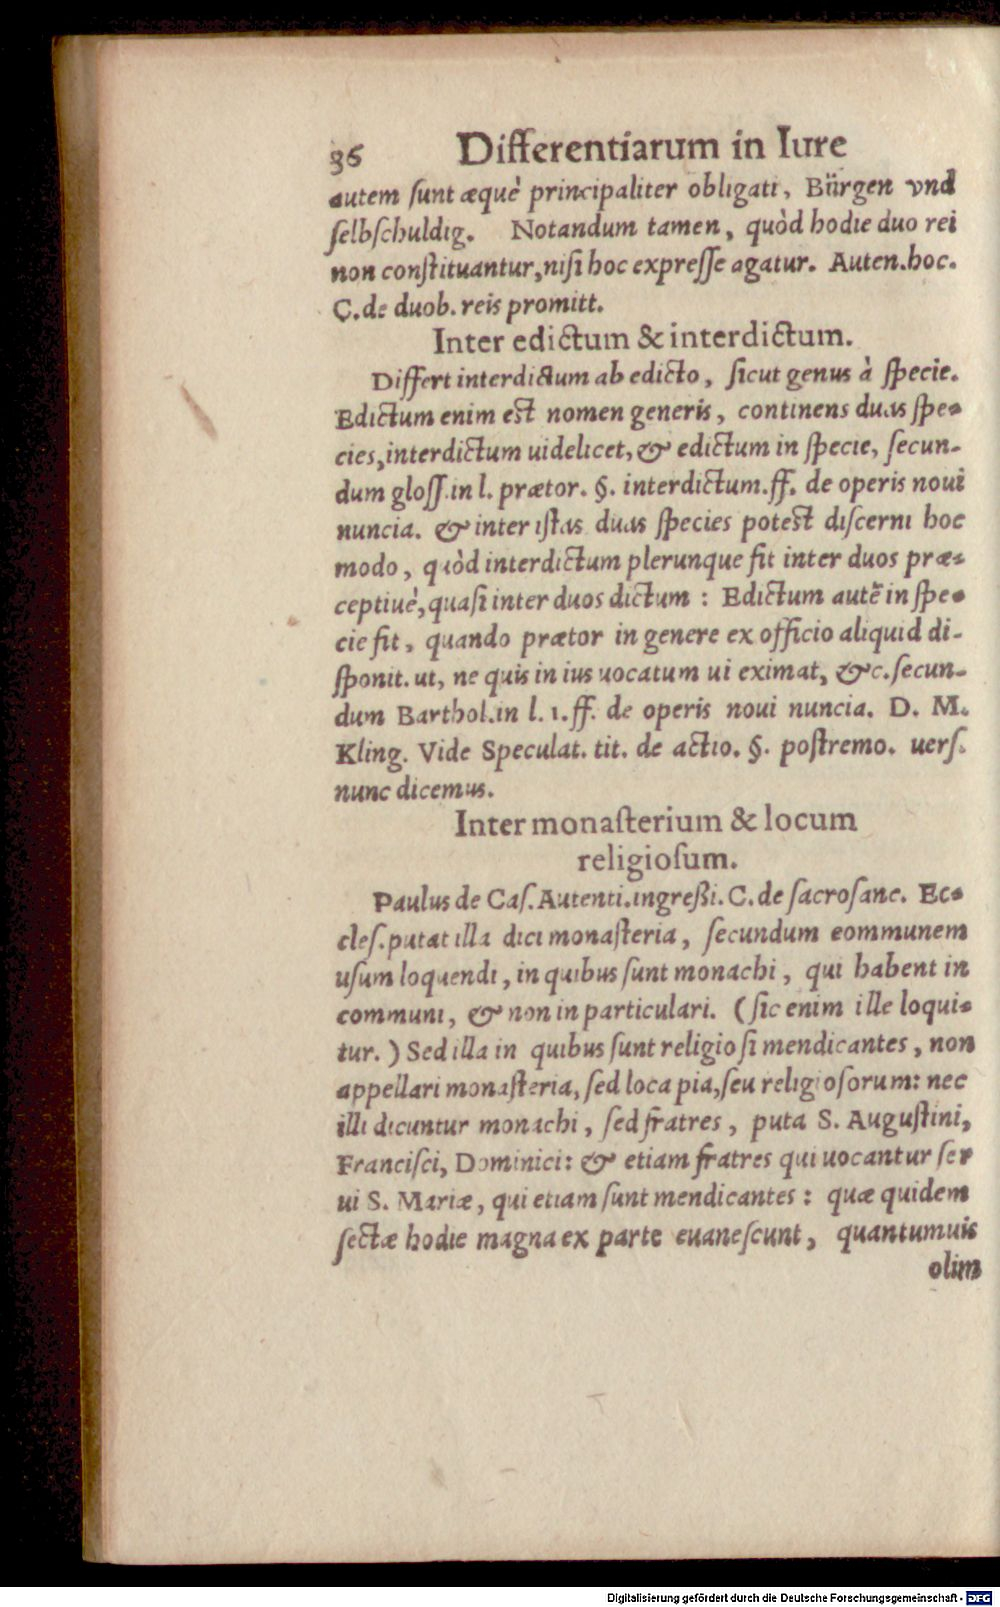 36 Differentiarum in Iure
autem ſunt æquè principaliter obligati, Bürgen vnd
ſelbſchuldig. Notandum tamen, quòd hodie duo rei
non conſtituantur, niſi hoc expreſſe agatur. Auten. hoc.
C. de duob. reis promitt.
Inter edictum & interdictum.
Differt interdictum ab edicto, ſicut genus à ſpecie.
Edictum enim est nomen generis, continens duas ſpe-
cies, interdictum uidelicet, & edictum in ſpecie, ſecun-
dum gloſſ. in l. prætor. §. interdictum. ff. de operis noui
nuncia. & inter iſtas duas ſpecies potest diſcerni hoc
modo, quòd interdictum plerunque fit inter duos præ-
ceptiuè, quaſi inter duos dictum : Edictum autẽ in ſpe-
cie fit, quando prætor in genere ex officio aliquid di-
ſponit. ut, ne quis in ius uocatum ui eximat, &c. ſecun-
dum Barthol. in l. 1. ff. de operis noui nuncia. D. M.
Kling. Vide Speculat. tit. de actio. §. poſtremo. uerſ.
nunc dicemus.
Inter monaſterium & locum
religioſum.
Paulus de Caſ. Autenti. ingreßi. C. de ſacroſanc. Ec-
cleſ. putat illa dici monaſteria, ſecundum communem
uſum loquendi, in quibus ſunt monachi, qui habent in
communi, & non in particulari. (ſic enim ille loqui-
tur.) Sed illa in quibus ſunt religioſi mendicantes, non
appellari monaſteria, ſed loca pia, ſeu religioſorum: nec
illi dicuntur monachi, ſed fratres, puta S. Auguſtini,
Franciſci, Dominici: & etiam fratres qui uocantur ſer
ui S. Mariæ, qui etiam ſunt mendicantes : quæ quidem
ſectæ hodie magna ex parte euaneſcunt, quantumuis
olim
Digitalisierung gefördert durch die Deutsche Forschungsgemeinschaft - DFG